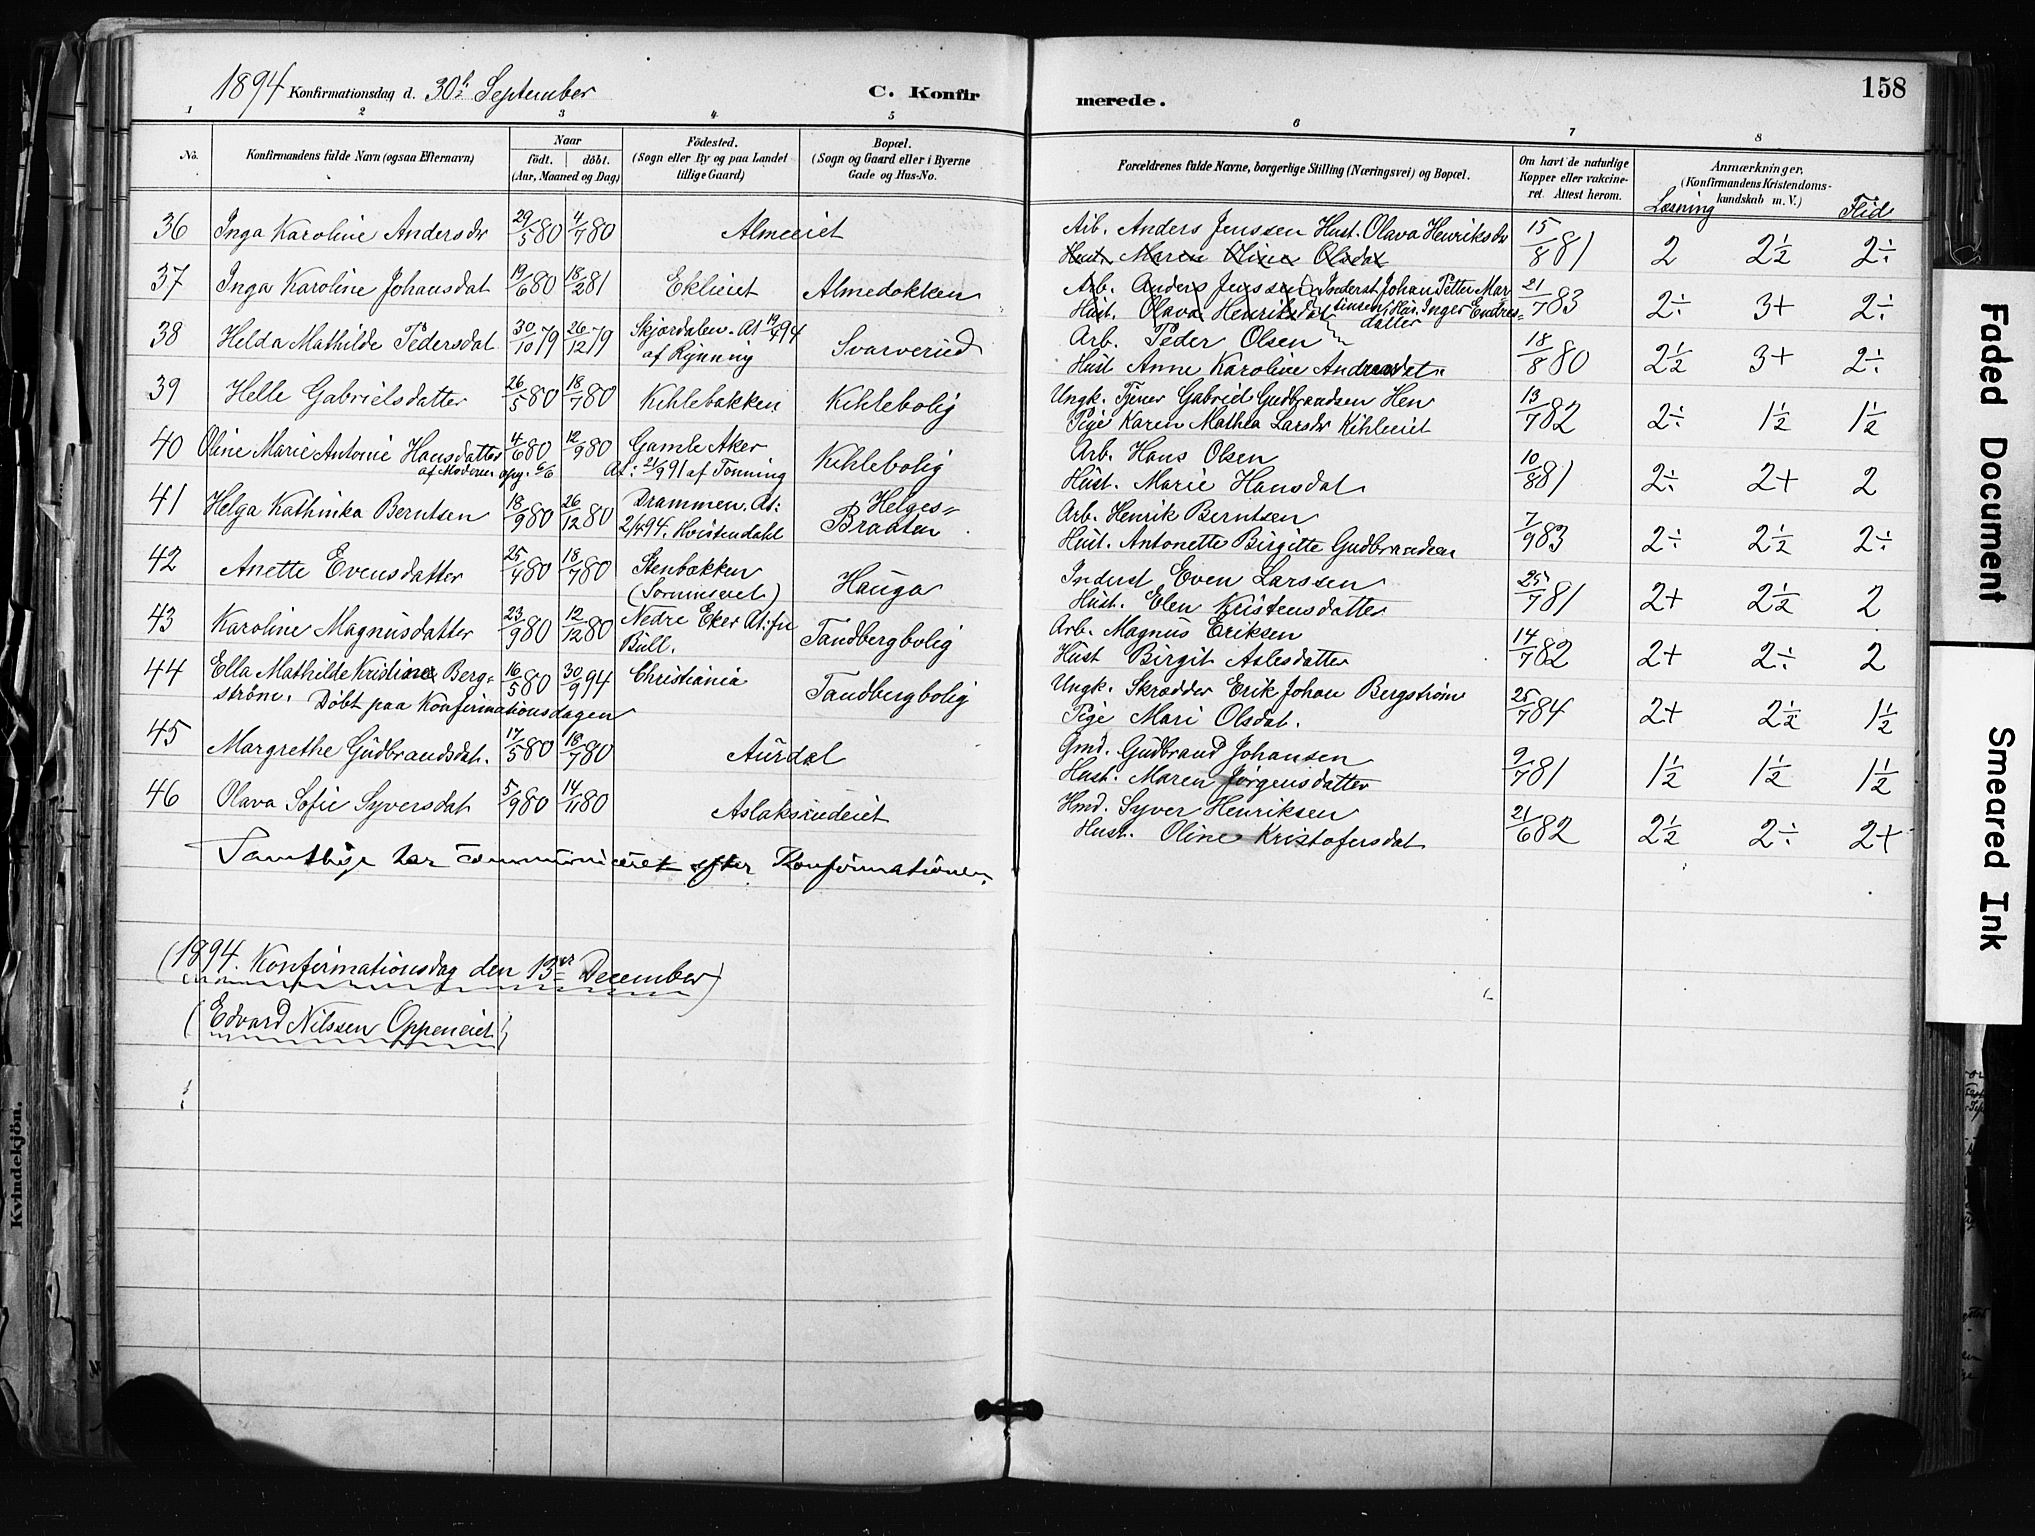 1894 Konfirmationsdag d. 30te September
C. Konfirmerede.
158
1 2 3 4 5 6 7 8
No. Konfirmandens fulde Navn (ogsaa Efternavn) Naar födt. döbt. (Aar, Maaned og Dag) Födested. (Sogn eller By og paa Landet tillige Gaard) Bopæl. (Sogn og Gaard eller i Byerne Gade og Hus-No. Forældrenes fulde Navne, borgerlige Stilling (Næringsvei) og Bopæl. Om havt de naturlige Kopper eller vakcineret. Attest herom. Anmærkninger. (Konfirmandens Kristendomskundskab m. V.) Læsning Flid
36 Inga Karoline Andersdr 29/5 80 4/7 80 Almeeiet Arb. Anders Jenssen Hust. Olava Henriksdr 15/8 81 2 2½ 2÷
Hust. Maren Oline Olsdat
37 Inga Karoline Johansdat 19/6 80 18/2 81 Eklieiet Almedokken Arb. Anders Jenssen Inderst Johan Petter Martinsen, Hus. Inger Endresdatter 21/7 83 2÷ 3+ 2÷
Hust. Olava Henriksdat
38 Helda Mathilde Pedersdat 30/10 79 26/12 79 Skjordalen. At 19/4 94 af Rynning Svarverud Arb. Peder Olsen 18/8 80 2½ 3+ 2÷
Hust Anne Karoline Andreasdat
39 Helle Gabrielsdatter 26/5 80 18/7 80 Kihlebakken Kihlebolig Ungk. Tjener Gabriel Gudbrandsen Hen 13/7 82 2÷ 1½ 1½
Pige Karen Mathea Larsdr Kihleeiet
40 Oline Marie Antonie Hansdatter 4/6 80 12/9 80 Gamle Aker Kihlebolig Arb. Hans Olsen 10/8 81 2÷ 2+ 2
af Moderen opg. 6/6 At: 21/9 91 af Tønning Hust. Marie Hansdat
41 Helga Kathinka Berntsen 18/9 80 26/12 80 Drammen. At: 2/4 94. Kvistendahl Helges= Braaten Arb. Henrik Berntsen 7/9 83 2÷ 2½ 2÷
Hust. Antonette Birgitte Gudbrandsen
42 Anette Evensdatter 25/4 80 18/7 80 Stenbakken Hauga Inderst Even Larssen 25/7 81 2+ 2½ 2
Hust. Elen Kristensdatter
43 Karoline Magnusdatter 23/9 80 12/12 80 Nedre Eker At: fra Bull. Tandbergbolig Arb. Magnus Eriksen 14/7 82 2+ 2÷ 2
Hust Birgit Aslesdatter
44 Ella Mathilde Kristine Berg= 16/5 80 30/9 94 Christiania Tandbergbolig Ungk. Skrædder Erik Johan Bergstrøm 25/7 84 2+ 2½ 1½
strøm. Døbt paa Konfirmationsdagen Pige Mari Olsdat.
45 Margrethe Gudbrandsdat. 17/5 80 18/7 80 Aurdal Gmd. Gudbrand Johansen 9/7 81 1½ 1½ 1½
Hust. Maren Jørgensdatter
46 Olava Sofie Syversdat 5/9 80 14/11 80 Aslaksrudeiet Hmd. Syver Henriksen 21/6 82 2½ 2÷ 2+
Hust. Oline Kristofersdat
Samtlige har communiceret efter Konfirmationen.
(1894. Konfirmationsdag den 13de December)
(Edvard Nilssen Oppeneiet)
Kvindekjön.
Faded Document
Smeared Ink